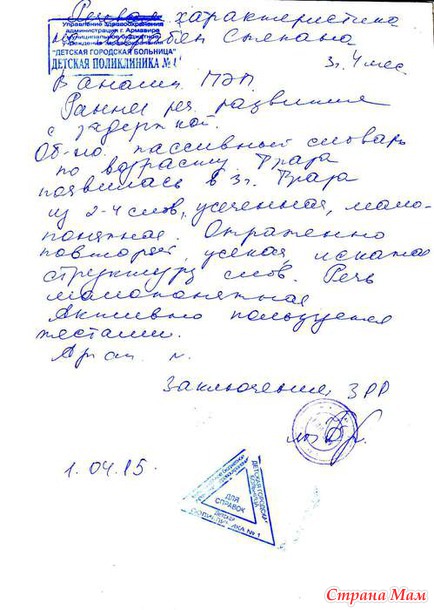 Речевая характеристика
Управление Здравоохранения
администрации г. Армавира
Муниципальное бюджетное
учреждение здравоохранения
"ДЕТСКАЯ ГОРОДСКАЯ БОЛЬНИЦА"
ДЕТСКАЯ ПОЛИКЛИНИКА № 1
Степана
3г. 4 мес.
В анамн. ПЭП.
Раннее реч. развитие
с задержкой.
Об-но: пассивный словарь
по возрасту. Фраза
появилась в 3г. Фраза
из 2-4 слов, усеченная, мало-
понятная. Отраженно
повторяет, усекая, искажая
структуру слов. Речь
малопонятная
Активно пользуется
жестами.
Заключение: ЗРР
1.04.15.
ДЕТСКАЯ ГОРОДСКАЯ
БОЛЬНИЦА
ДЛЯ
СПРАВОК
ДЕТСКАЯ
ПОЛИКЛИНИКА № 1
Страна Мам